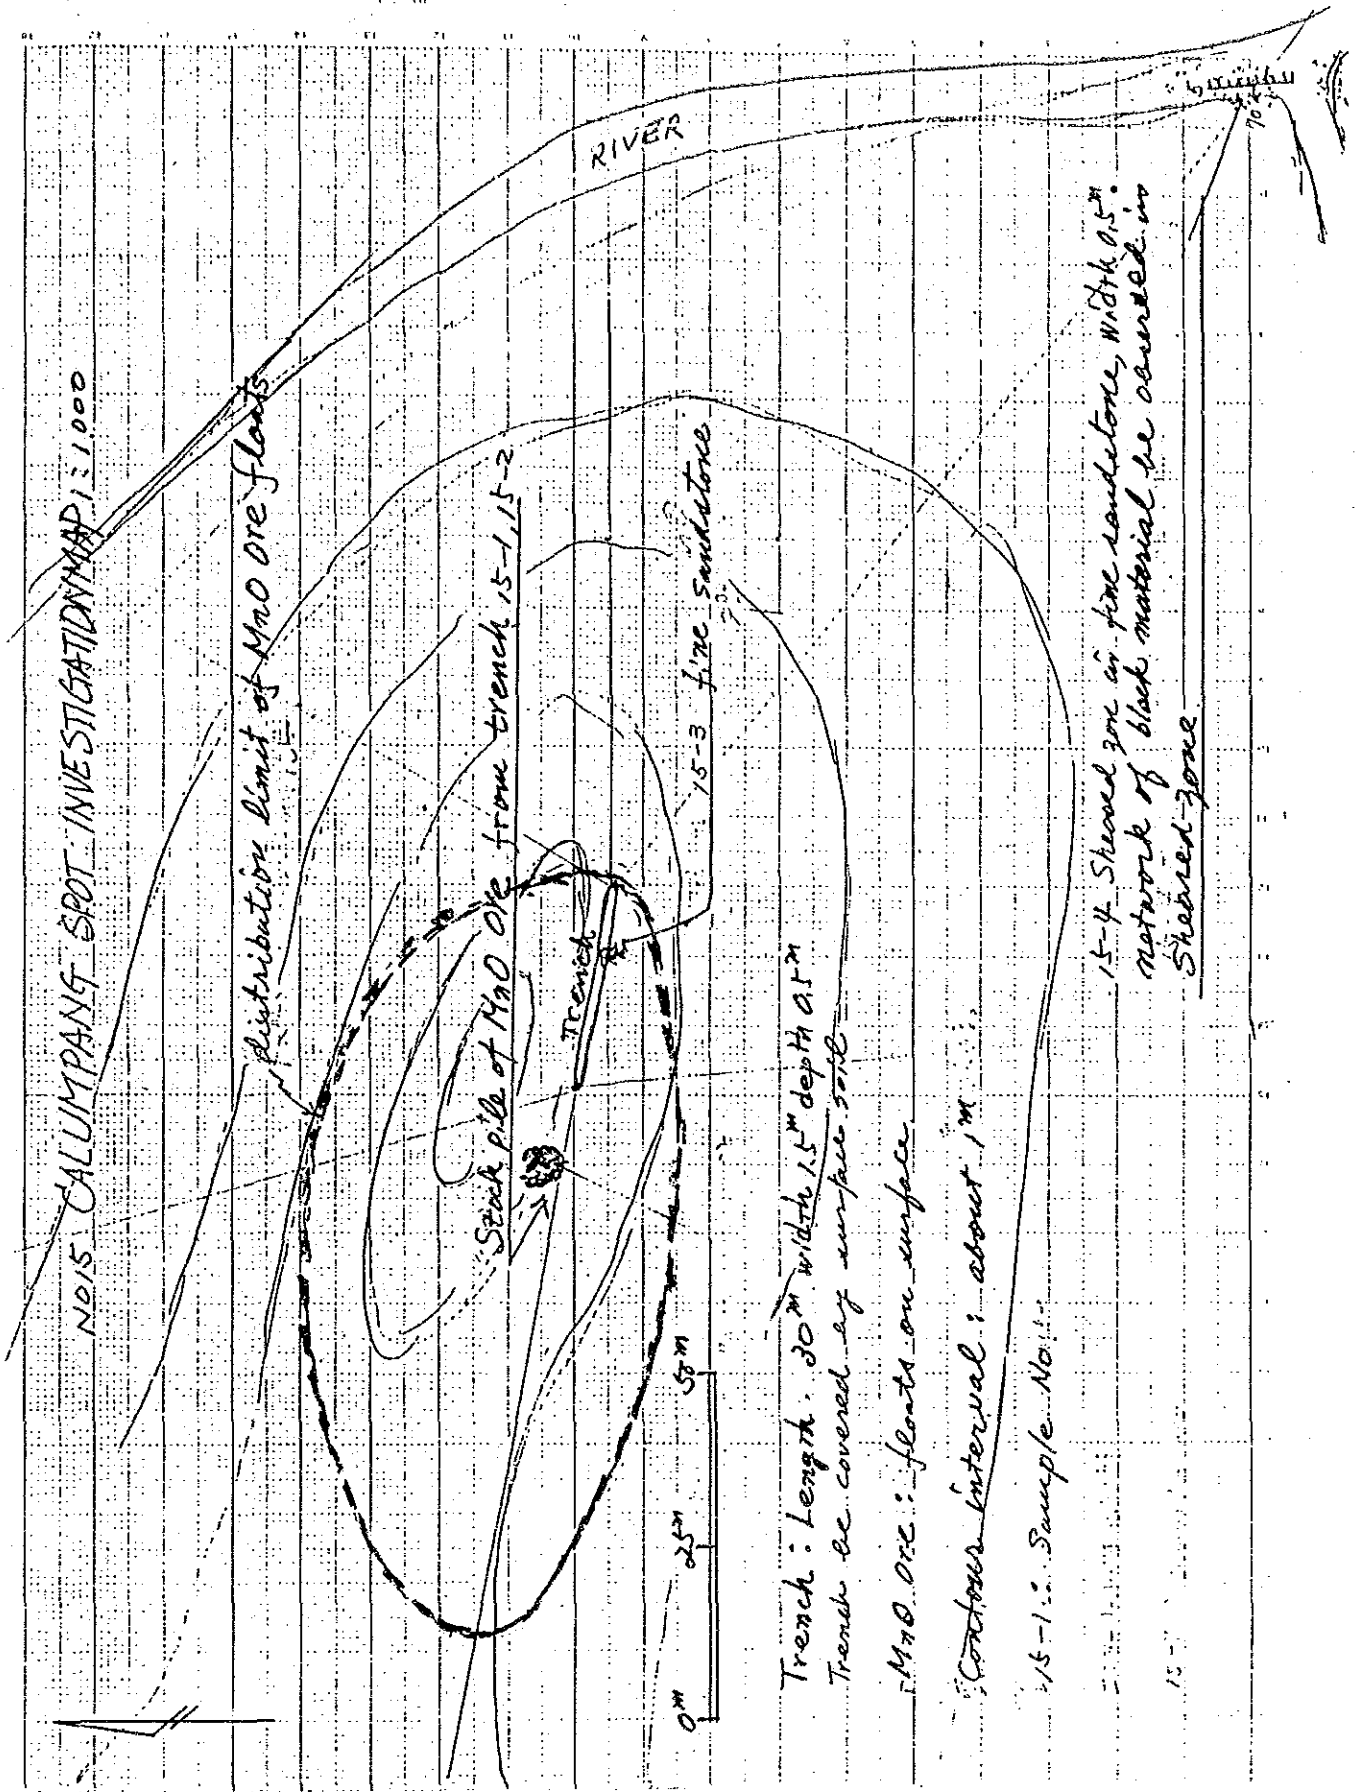 NO15 CALUMPANG SPOT: INVESTIGATION MAP 1:1000
distribution limit of MnO ore floats
RIVER
Stock pile of MnO Ore from trench 15-1, 15-2
Trench
15-3 fine sandstone
0m 25m 50m
Trench: Length. 30m width 1.5m depth 0.5m
Trench be covered by surface soil
MnO Ore: floats on surface
Contour interval: about 1m
15-1: Sample No.
5
70
15-4 Sheared zone in fine sandstone, Width 0.5m.
network of black material be occured in
Sheared zone